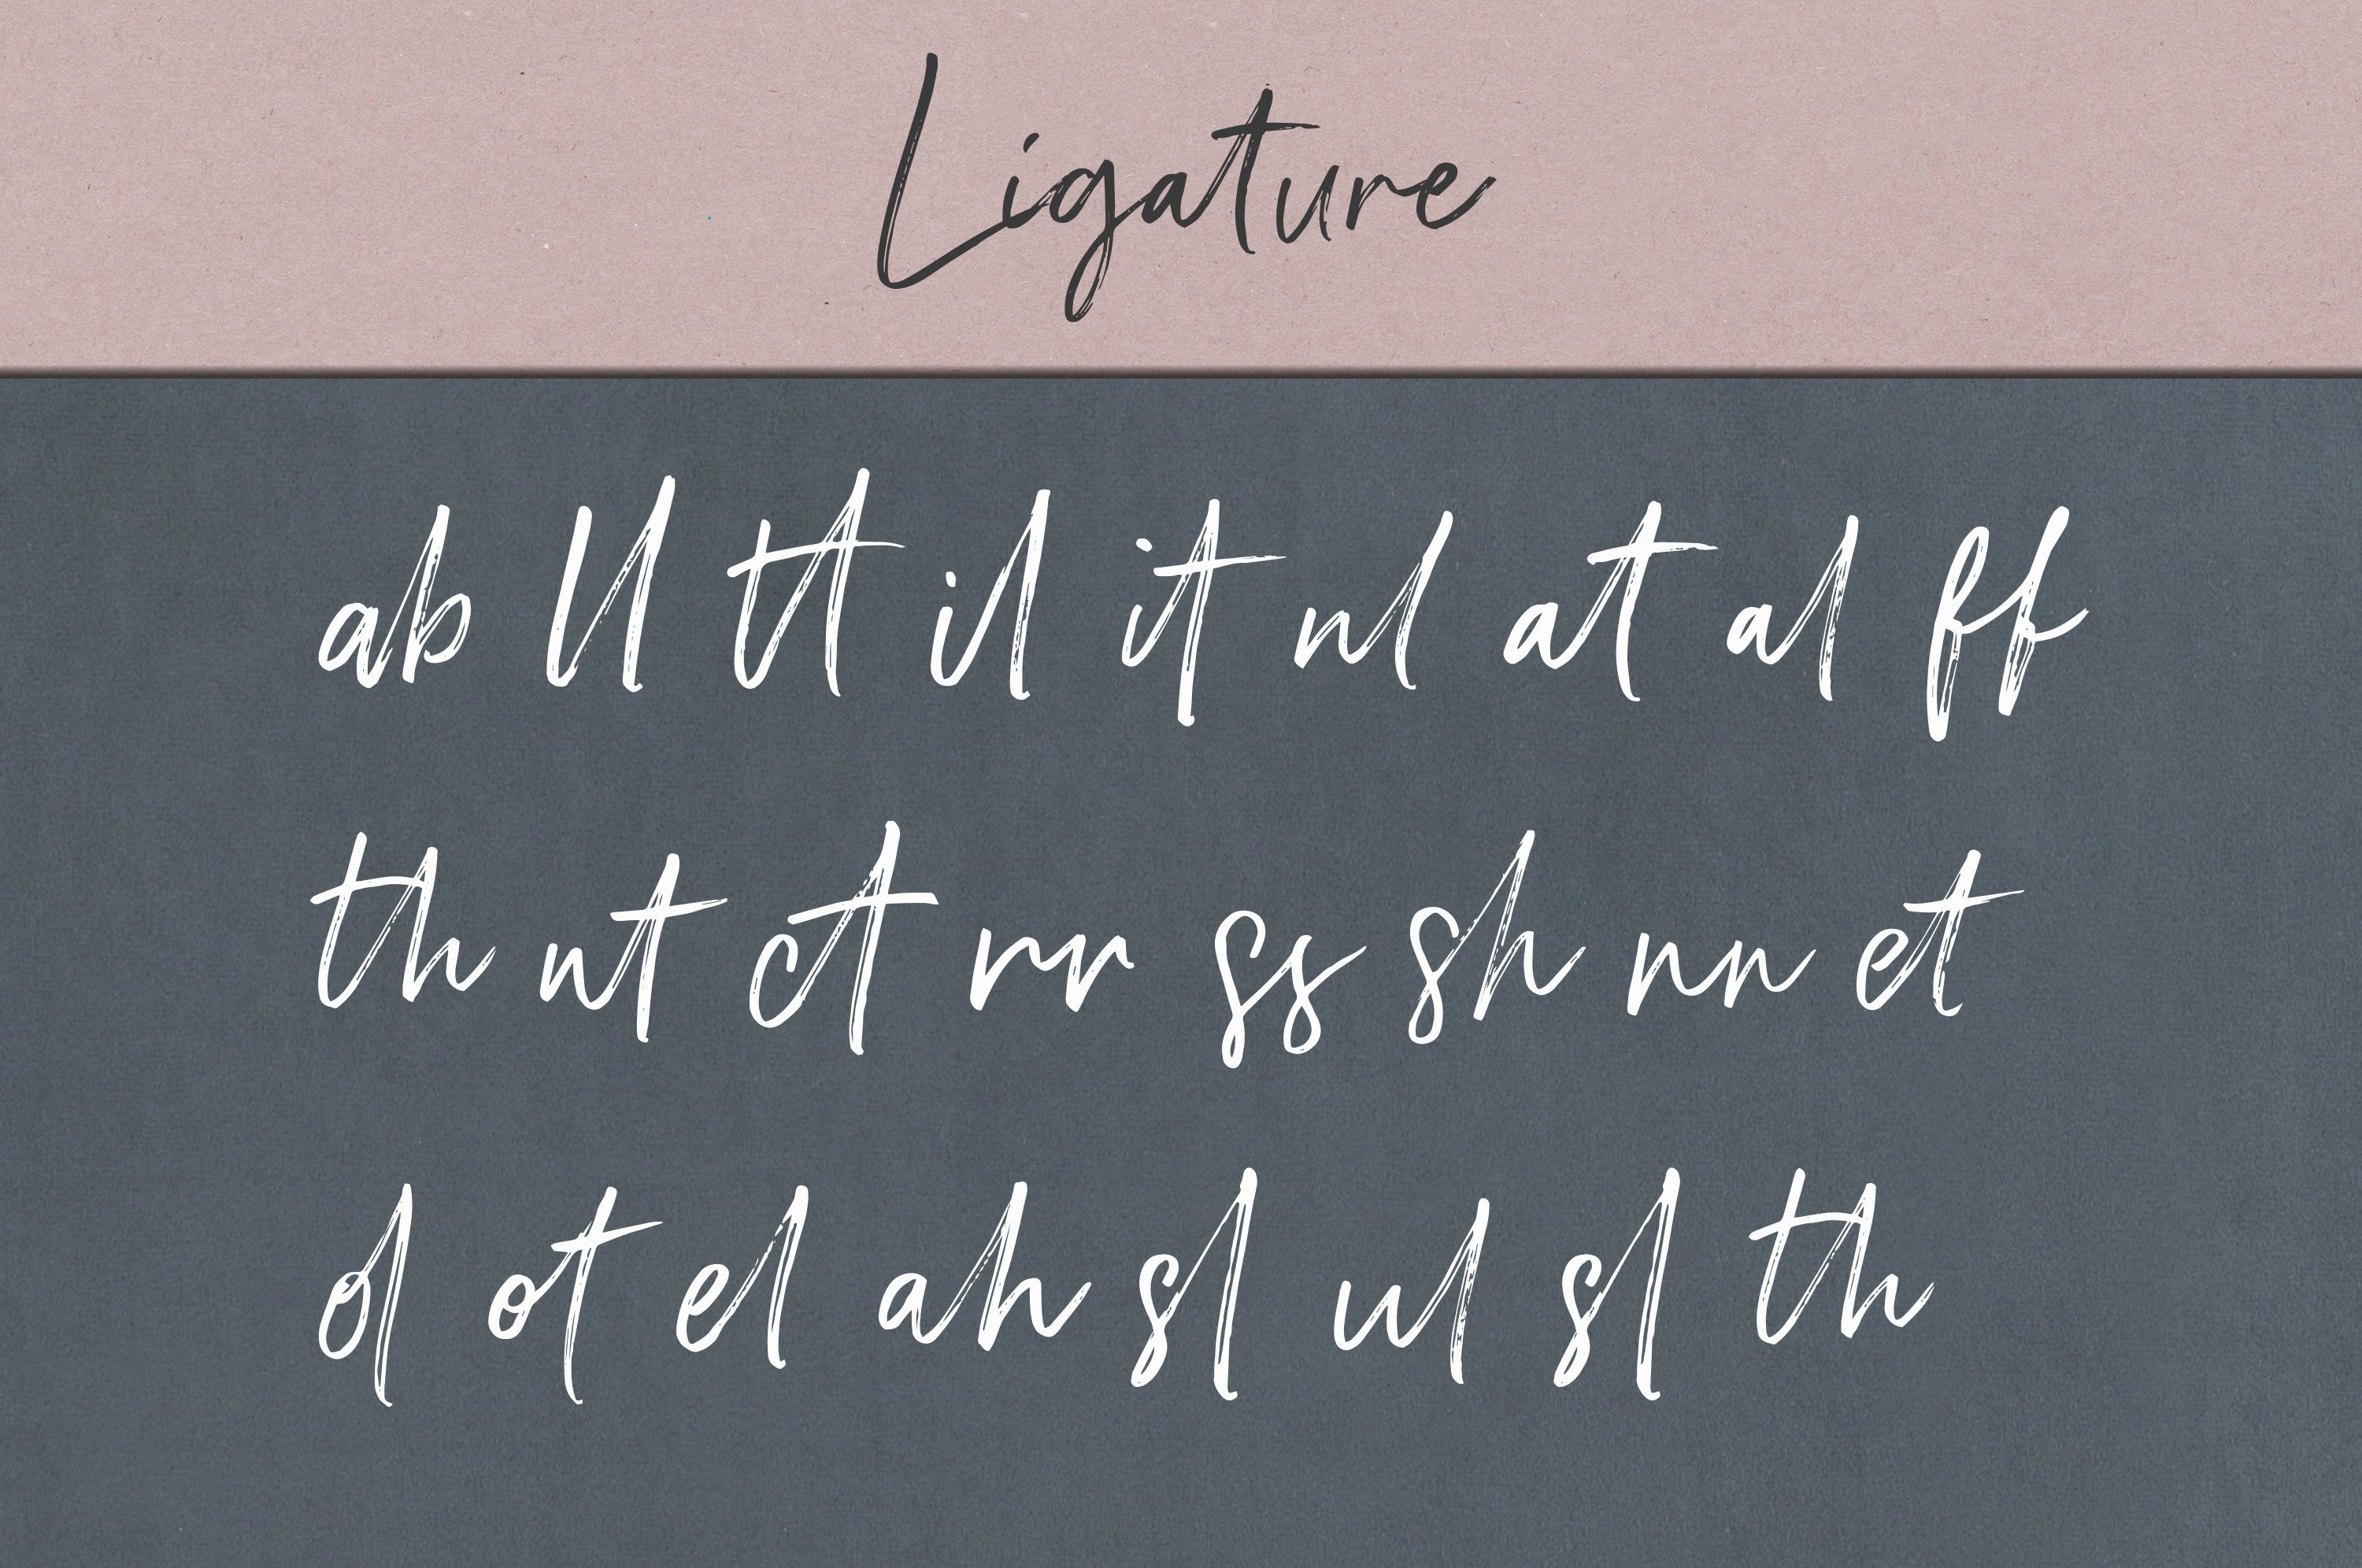 Ligature
ab ll tt il it nl at al ff
th nt ct rr ss sh nn et
ol ot el ah sl ul sl th